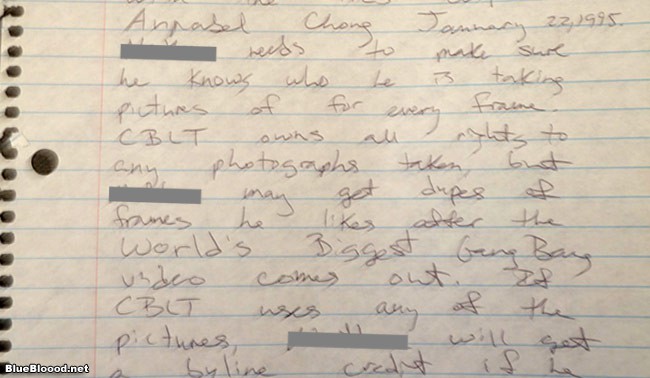 Annabel Chong January 22, 1995.
needs to make sure
he knows who he is taking
pictures of for every frame.
CBLT owns all rights to
any photographs taken, but
may get dupes of
frames he likes after the
World's Biggest Gang Bang
video comes out. If
CBLT uses any of the
pictures, will get
a byline credit if he
BlueBloood.net